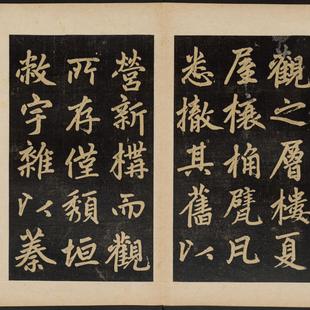 觀之層樓夏
屋榱桷甓瓦
悉撤其舊以
營新構而觀
所存僅頹垣
敝宇雜以蓁